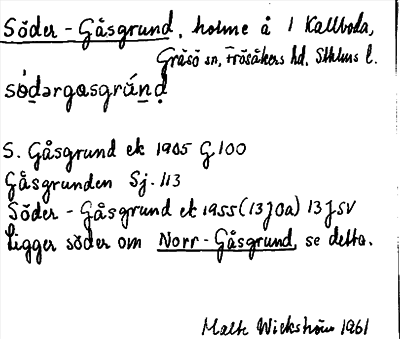 Söder-Gåsgrund, holme å 1 Kallboda,
Gräsö sn, Frösåkers hd, Sthlms l.
sö̀dərgɑsgrán̠ḍ
S. Gåsgrund ek 1905 G 100
Gåsgrunden Sj. 113
Söder-Gåsgrund ek 1955 (13J0a) 13J SV
Ligger söder om Norr-Gåsgrund, se detta.
Malte Wickström 1961